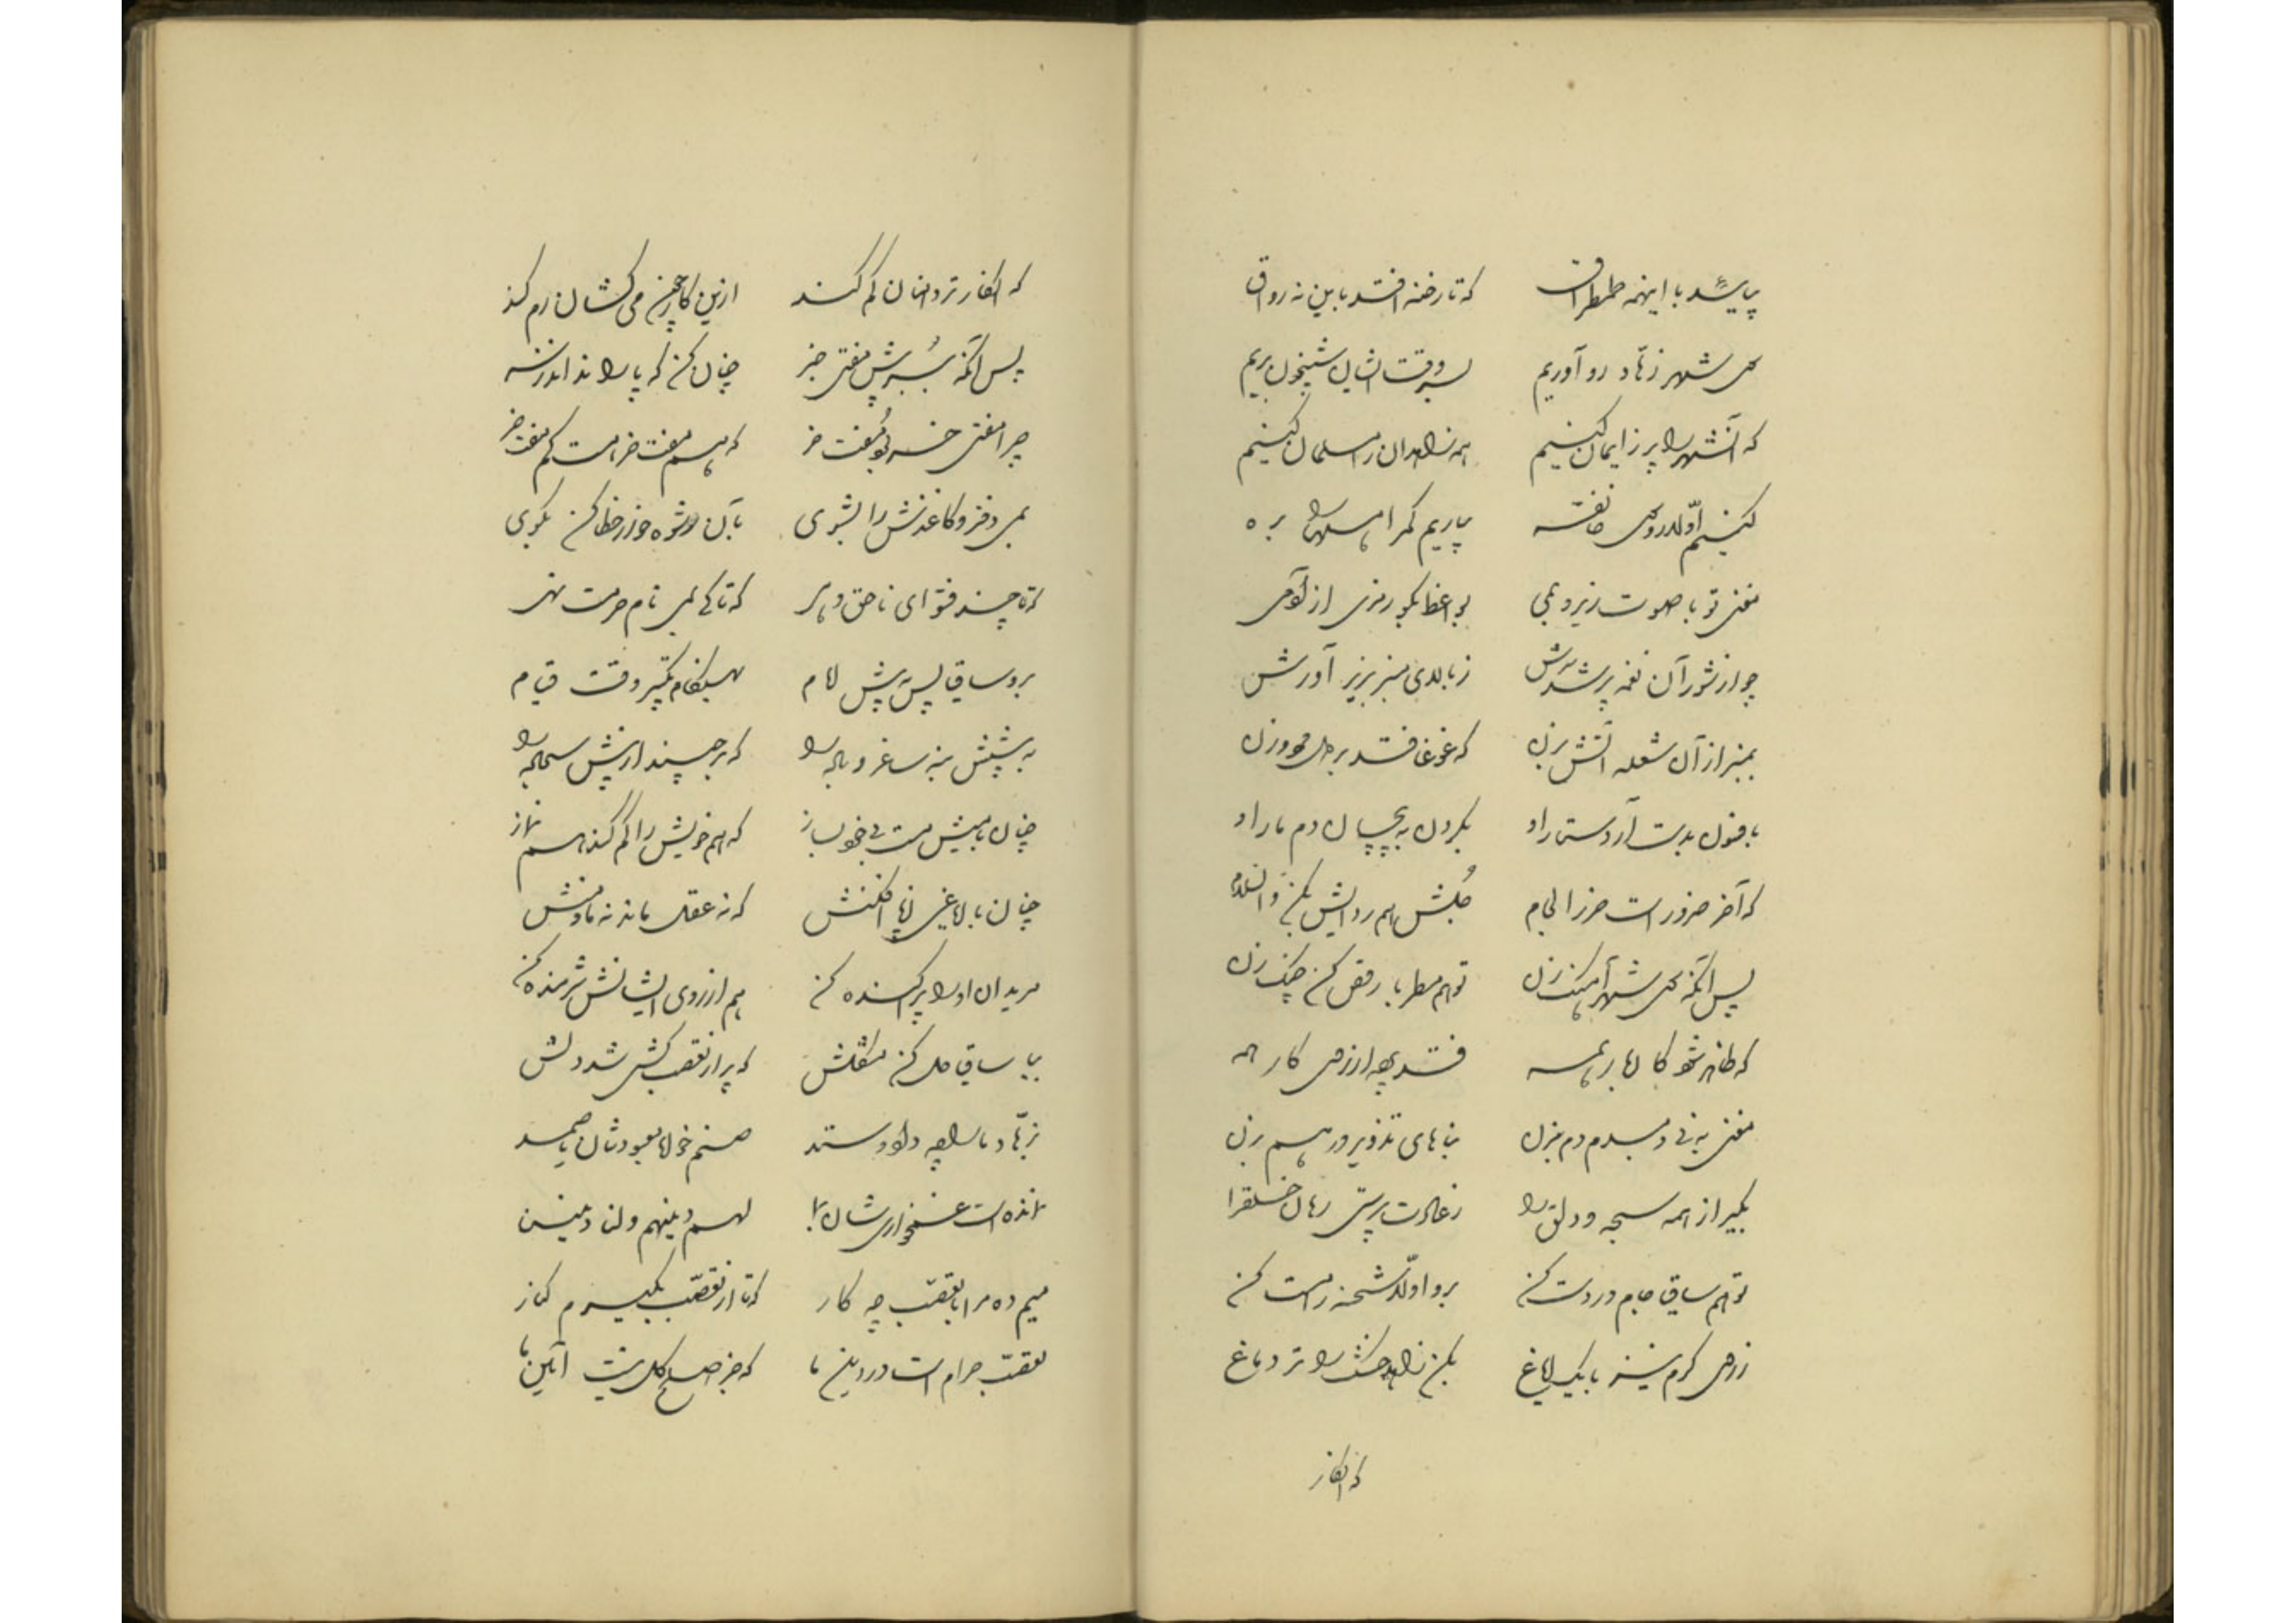 بپاشید با اینهمه طمطراق که تا رخنه افتد باین نه رواق
سوی شهر زهاد رو آوریم بسروقت ایشان شبیخون بریم
که آنشهر را پر ز ایمان کنیم همه زاهدان را مسلمان کنیم
کنیم اول رو سوی خانقه بیاریم گمراهان را بره
مغنی تو با صوت زیر و بمی بواعظ بگو رمزی از آدمی
چو از شور آن نغمه پر شد سرش ز بالای منبر بزیر آورش
بمنبر از آن شعله آتش بزن که غوغا فتد بر مرد و زن
بافسون بدست آر دستار او بگردن به پیچان دم مار او
که آخر ضرور است خر را لجام جلش هم ردایش بکن والسلام
پس آنگه سوی شهر آهنگ زن تو هم مطربا رقص کن چنگ زن
که ظاهر شود کارها بر همه فتد بهر ارزمی کار همه
مغنی به نی دمبدم دم بزن بناهای تزویر درهم بزن
بگیر از همه سبحه و دلق را ز عادت پرستی رهان خلق را
تو هم ساقی جام در دست کن برو اول شحنه را مست کن
ز می گرم کن بیک ایاغ بکن زاهد خشک را تر دماغ
که انکار
که انکار تردامنان کم کنند ازین کار چون می کشان رم کنند
پس آنگه ببر پیش مفتی خبر چنان کن که پا را نداند ز سر
چرا مفتی خسر گو مفت خر که هم مفت خر هست هم مفت خر
بمی دفتر و کاغذش را بشوی بآن رشوه خور خطا کن بگوی
که تا چند فتوای ناحق دهی که تا کی بمی نام حرمت نهی
برو ساقی پس به پیش امام بهنگام تکبیر وقت قیام
به پیشش بنه ساغر و باده را که برچیند از پیش سجاده را
چنان بیش مست بیخود بساز که هم خویش را گم کند هم نماز
چنان با ایاغی ز پا افکنش که نه عقل ماند نه ما و منش
مریدان او را پراکنده کن هم از روی ایشانش شرمنده کن
بیا ساقی حل کن مشکلش که پر از تعصب کشی شد دلش
بزهاد ما را چه داد و ستد صنم خواه معبودشان یا صمد
نمانده است غمخواری شان بما لهم دینهم ولنا دیننا
میم ده مرا با تعصب چه کار که تا از تعصب بگیرم کنار
تعصب حرام است در دین ما که جز صلح کل نیست آئین ما